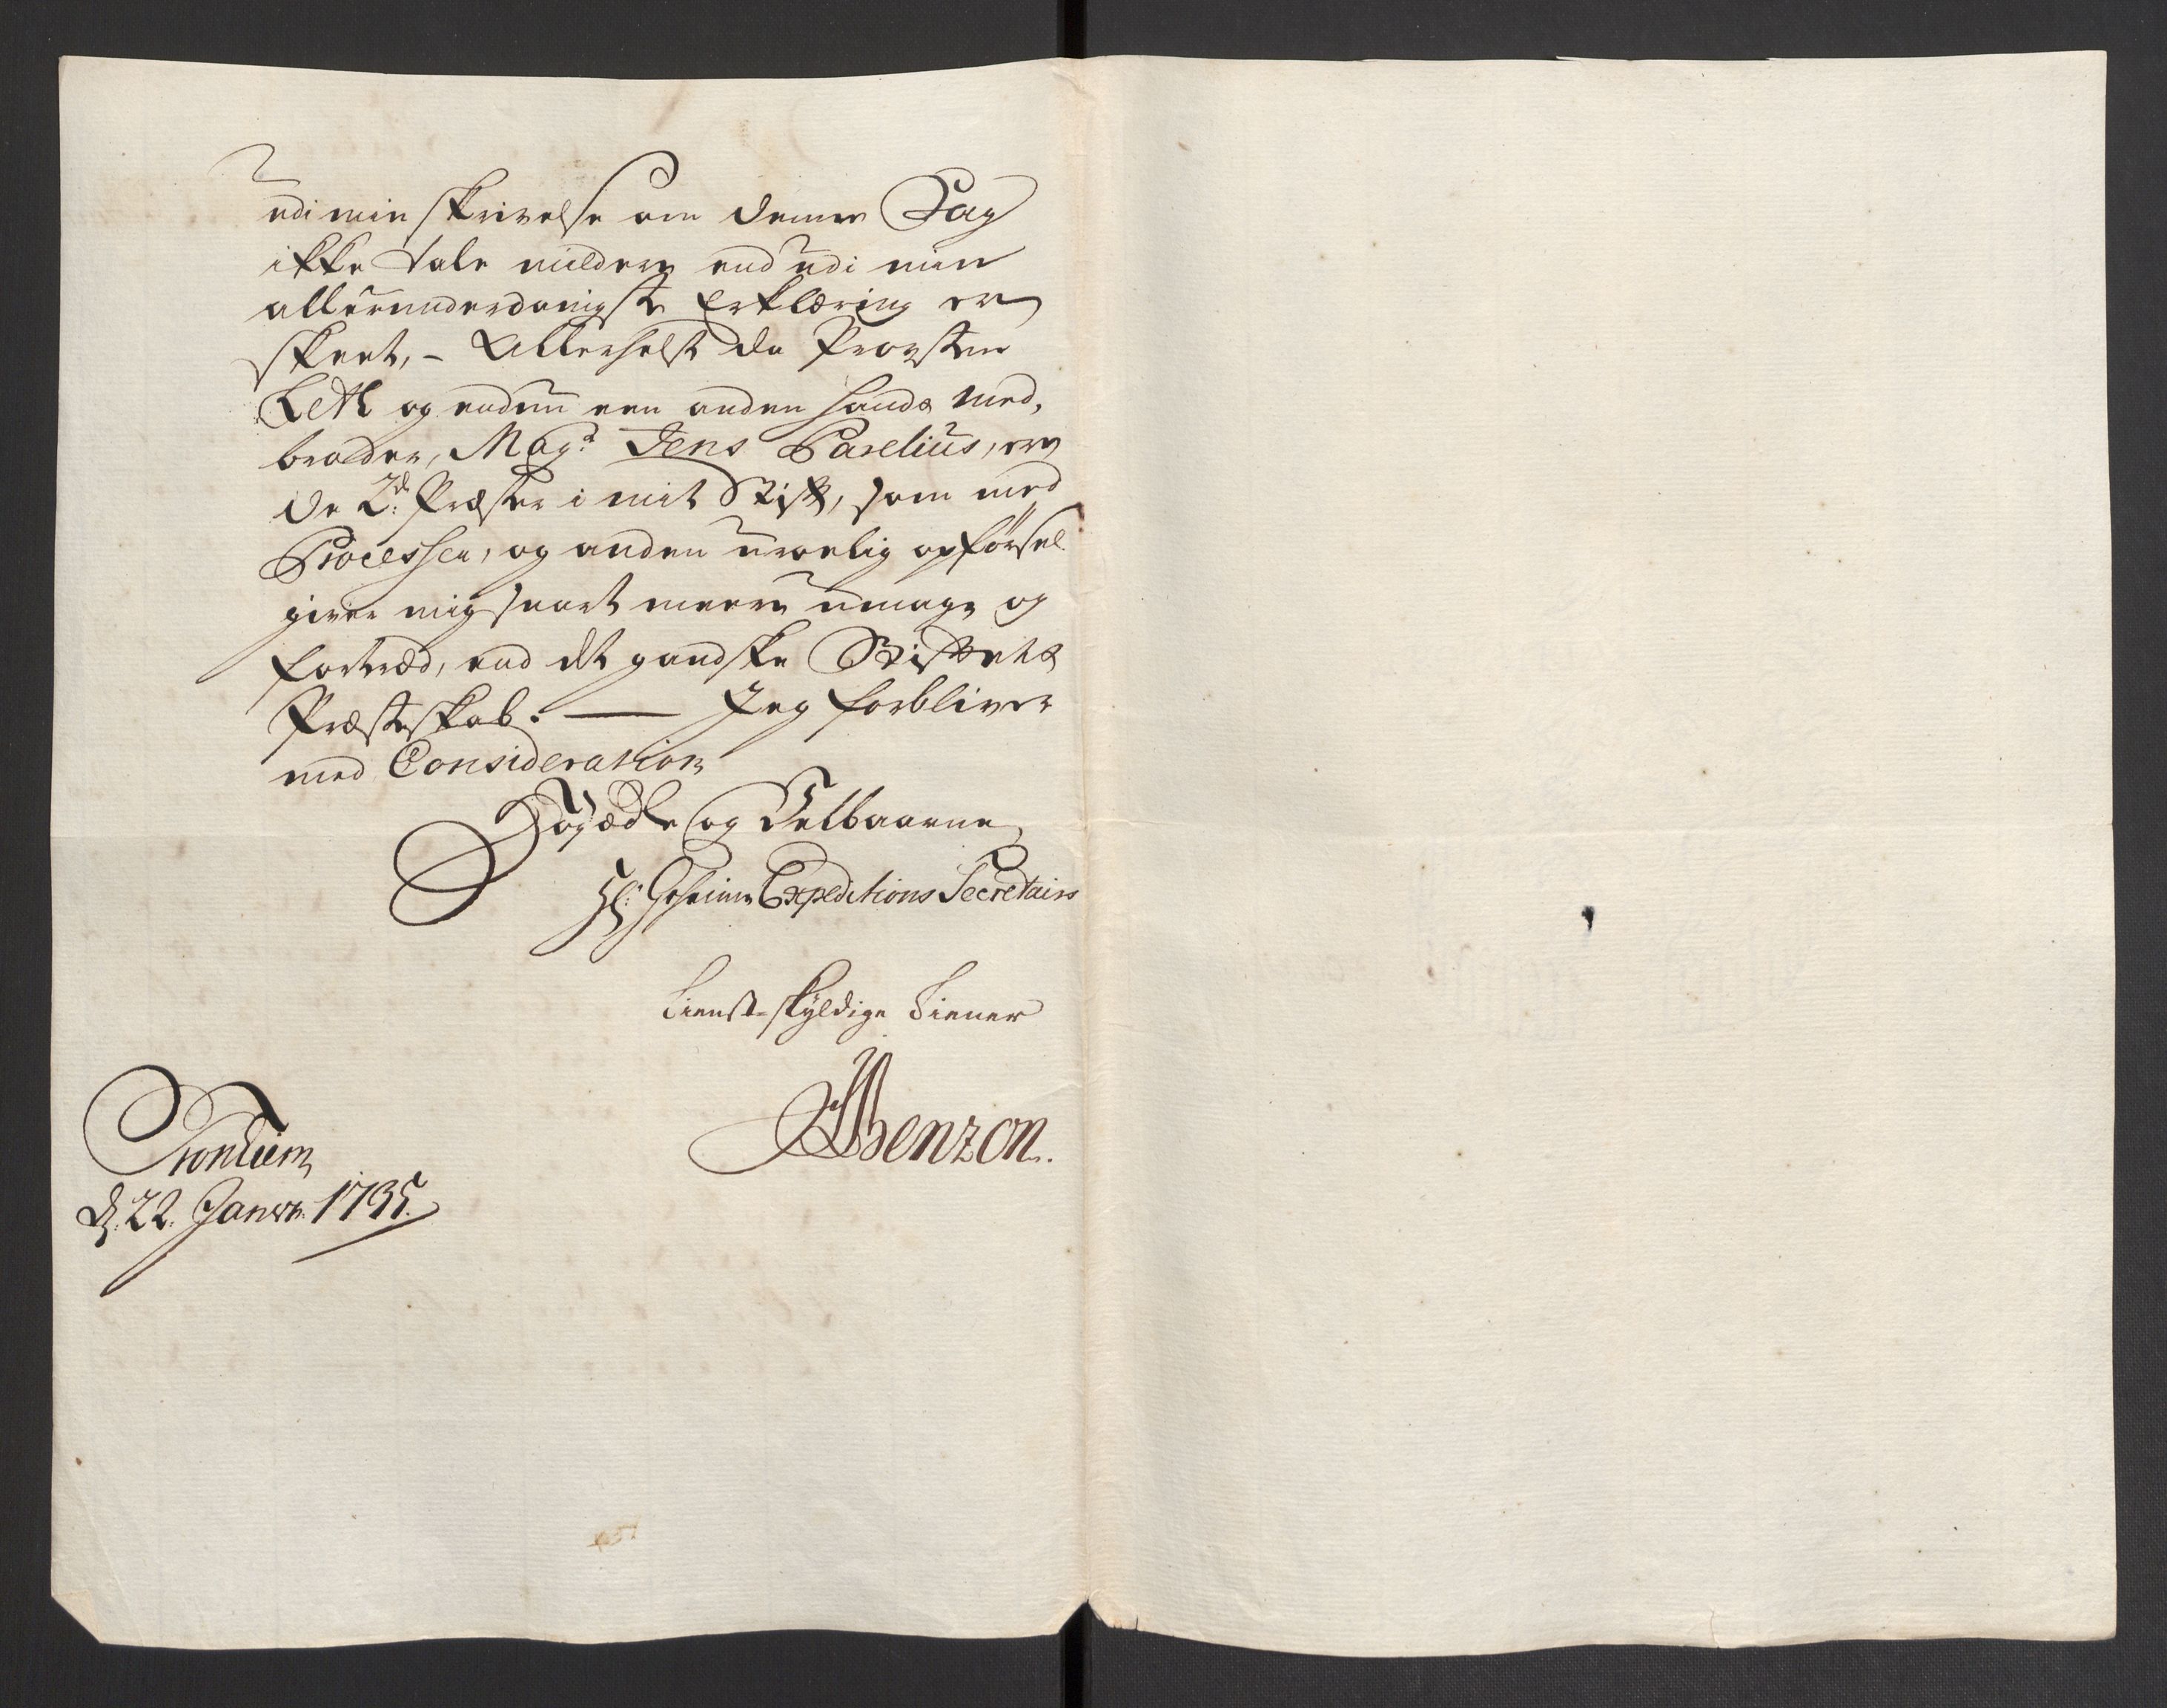 udi min skrivelse om denne Sag
ikke tale mildere end udi min
allerunderdanigste Erklæring er
skeet, – Allerhelst da Provsten
Leth og endnu een anden hands med,
broder, Magr Jens Parelius, ere
de 2de Præster i mit Stift, som med
Processer, og anden uroelig opførsel
giver mig snart meere umage og
fortræd, end det gandske Stiftets
Præsteskab. — Jeg forbliver
med Consideration
Høyædle og Velbaarne
Hr: Geheime Expeditions Secretairs
tienst-skyldige tiener
Benzon.
Trondiem
d: 22. Janua: 1735.